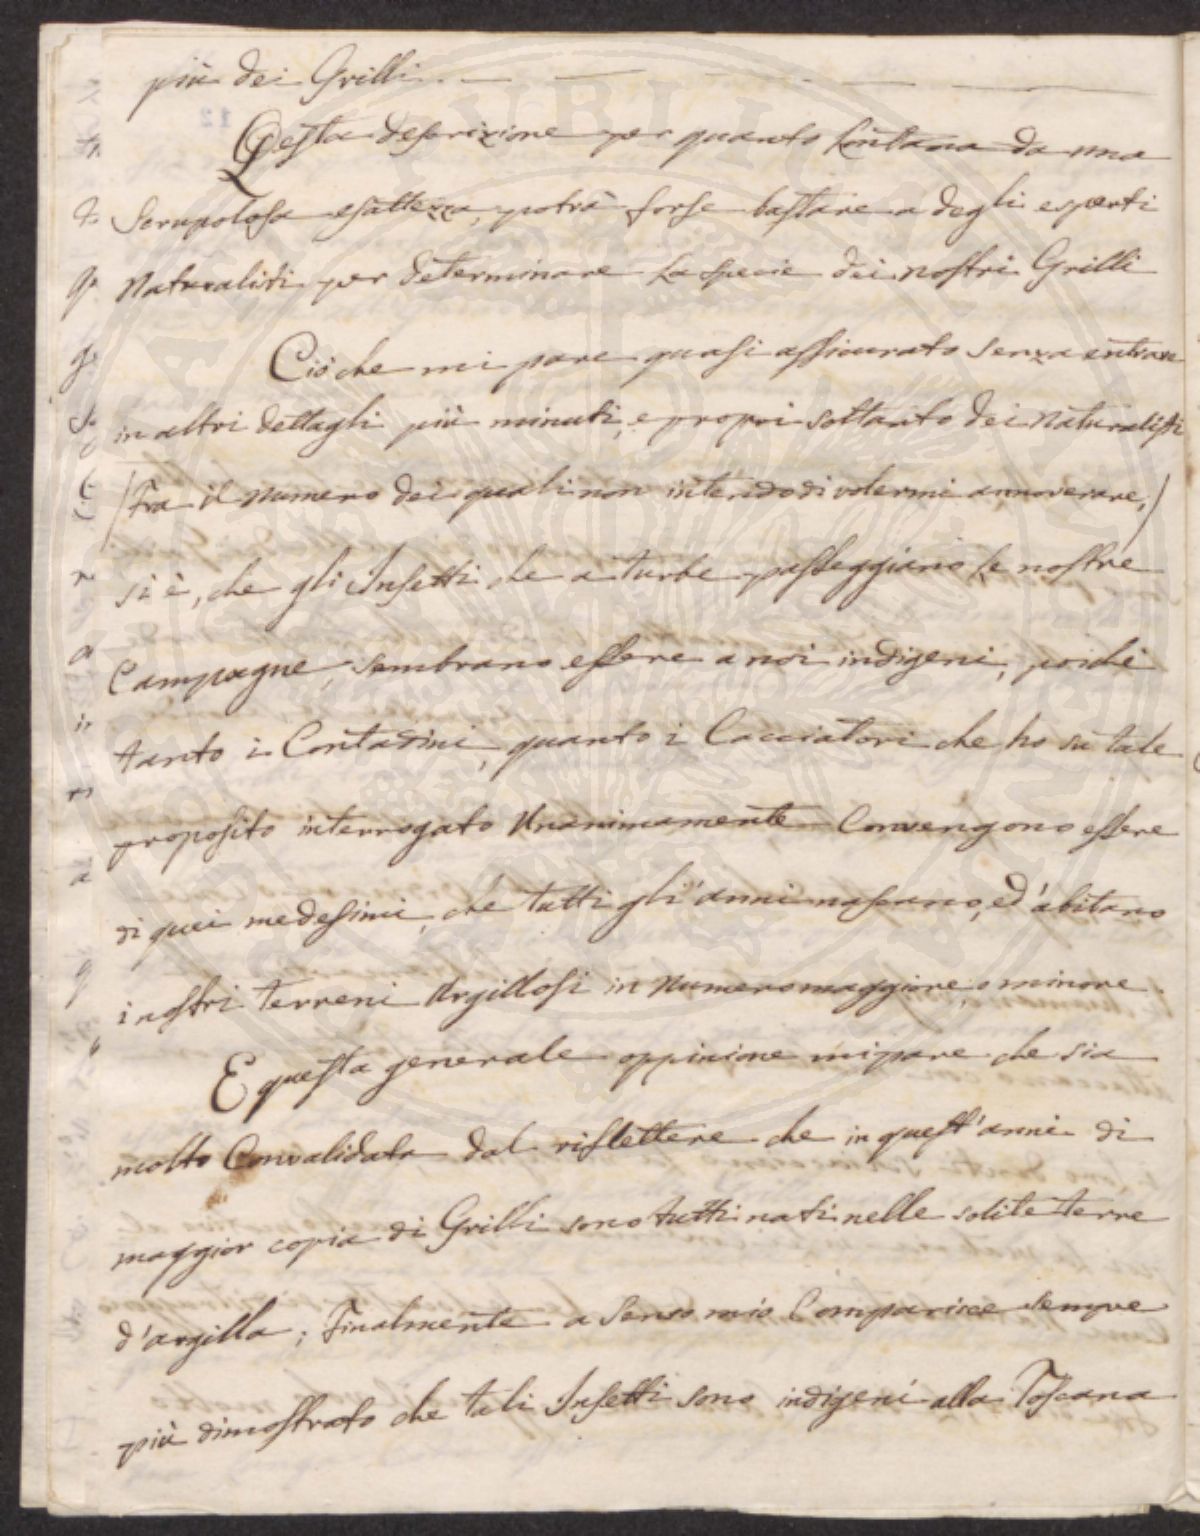 più dei Grilli. — — — — —
Questa descrizione per quanto lontana da una
Scrupolosa esattezza, potrà forse bastare a degli esperti
Naturalisti per determinare la specie dei nostri Grilli
Ciò che mi pare quasi assicurato senza entrare
in altri dettagli più minuti, e propri soltanto dei Naturalisti
(Fra il numero dei quali non intendo di volermi annoverare,)
si è, che gli Insetti che a turbe passeggiano le nostre
Campagne, sembrano essere a noi indigeni, poichè
tanto i Contadini, quanto i Cacciatori che ho su tale
proposito interrogato Unanimamente Convengono essere
di quei medesimi, che tutti gli'anni nascano, ed'abitano
i nostri terreni Argillosi in Numero maggiore, o minore.
E questa generale oppinione mi pare che sia
molto Convalidata dal riflettere che in quest'anni di
maggior copia di Grilli sono tutti nati nelle solite terre
d'argilla; Finalmente a Senso mio Comparisce sempre
più dimostrato che tali Insetti sono indigeni alla Toscana